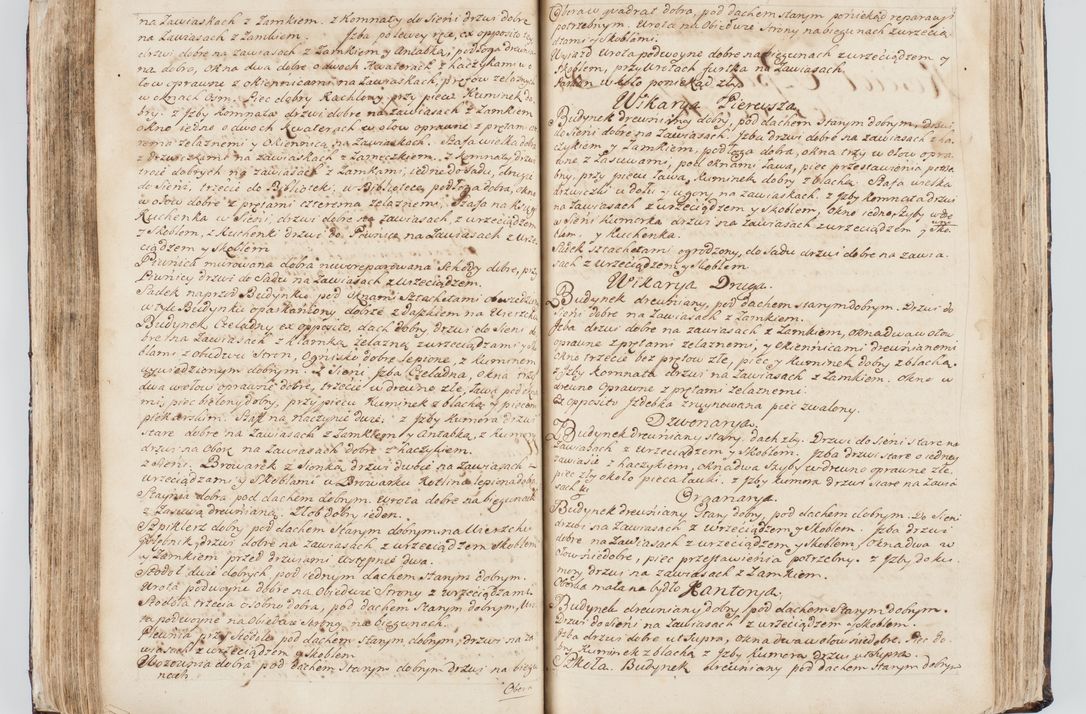 na Zawiaskach z Zamkiem. z Komnaty do Sieni drzwi dobre
na Zawiasach z Zamkiem. Jzba po lewey ręce, ex opposito tey
drzwi dobre na zawiasach z Zamkiem y Antabką, podłoga drewnia
na dobra, okna dwa dobre o dwoch Kwaterach z haczykami w o
łow oprawne z okiennicami na Zawiaskach, prętow żelaznych
w oknach ośm. Piec dobry Kachlowy przy piecu Kuminek do
bry. z Jzby Komnata drzwi dobre na zawiasach z Zamkiem
okno iedno o dwoch Kwaterach w ołow oprawne z prętami cz
terema żelaznemi y Okiennicą na Zawiaskach. Szafa wielka dobra
z drzwiczkami na zawiaskach z Zameczkiem. z Komnaty drzwi
troie dobrych na zawiasach z Zamkami, iedne do Sadu, drugie
do Sieni, trzecie do Biblioteki, w Bibliotece podłoga dobra, okno
w ołow dobre z prętami czterema żelaznemi, Szafa na Księgi
Kuchenka w Sieni, drzwi dobre na zawiasach z wrzeciądzem
y Skoblem, z Kuchenki drzwi do Piwnice na Zawiasach z wrze-
ciądzem y Skoblem
Piwnica murowana dobra nowo reparowana Schody dobre, przy
Piwnicy drzwi do Sadu na Zawiasach z wrzeciądzem.
Sadek naprzod Budynku pod oknami Sztachetami obwiedziony
w tyle Budynku oparkaniony dobrze z daszkiem na Wierzchu
Budynek Czeladny ex opposito, dach dobry drzwi do Sieni do
bre na Zawiasach z klamką żelazną z wrzeciądzami y Sko
blami z obudwu Stron, Ognisko dobre lepione, z Kuminem
wywiedzionym dobrym. z Sieni Jzba Czeladna, okna trzy
dwa w ołow oprawne dobre, trzecie w drewno złe, Ława pod okna
mi, piec bielony dobry, przy piecu Kuminek z blachą y piecem
piekarskim. Szafa na naczynie duże. z Jzby Komora drzwi
stare dobre na Zawiasach z Zamkiem y Antabką, z Komory
drzwi na Oborę na Zawiasach dobre z haczykiem.
z Sieni Browarek z Sionką drzwi dwoie na Zawiasach z
wrzeciądzami y Skoblami w Browarku Kotlina lepiona dobra
Staynia dobra pod dachem dobrym. wrota dobre na biegunach
z Zasuwą drewnianą. Żłob dobry ieden.
Szpiklerz dobry pod dachem Starym dobrym. na Wierzchu
Gołębnik, drzwi dobre na Zawiasach z wrzeciądzem Skoblem
y Zamkiem przed drzwiami wstępne dwa.
Stodoł duże dobrych pod iednym dachem starym dobrym.
Wrota podwoyne dobre na Obiedwie Strony z wrzeciądzami.
Stodoła trzecia osobno dobra, pod dachem Starym dobrym, wro
ta podwoyne na Obiedwie Strony na biegunach.
Plewnia przy Stodole pod dachem Starym dobrym, drzwi na Za
wiasach z wrzeciądzem y Skoblem
Wozownia dobra pod dachem Starym dobrym drzwi na biegu
nach.
Obora
Obora w quadrat dobra, pod dachem starym poniekąd reparacyi
potrzebnym. Wrota na Obiedwie Strony na biegunach z wrzecią
dzami y Skoblami.
Wjazd Wrota podwoyne dobre na biegunach z wrzeciądzem y
Skoblem, przy Wrotach furtka na Zawiasach.
Parkan w koło poniekąd zły.
Wikarya Pierwsza
Budynek drewniany dobry, pod dachem Starym dobrym, drzwi
do Sieni dobre na Zawiasach. Jzba drzwi dobre na zawiasach z ha
czykiem y Zamkiem, podłoga dobra, okna trzy w ołow opra
wne z Zasuwami, pod oknami ława, piec przestawienia potrze
bny, przy piecu ława, Kuminek dobry z blachą. Szafa wielka
drzwiczki u dołu y u gory na zawiaskach. z Jzby Komnata drzwi
na Zawiasach z wrzeciądzem y Skoblem, Okno iedno,
w Sieni Kumorka drzwi na Zawiasach z wrzeciądzem y Sko
blem. y Kuchenka.
Sadek Sztachetami ogrodzony, do Sadu drzwi dobre na zawia-
sach z wrzeciądzem y Skoblem
Wikarya Druga.
Budynek drewniany, pod dachem starym dobrym. Drzwi do
Sieni dobre na Zawiasach z Zamkiem.
Jzba drzwi dobre na zawiasach z Zamkiem, okna dwa w ołow
oprawne z prętami żelaznemi, y Okiennicami drewnianemi
Okno trzecie bez prętow złe, piec y Kuminek dobry z blachą.
z Jzby Komnata drzwi na Zawiasach z Zamkiem. okno w
drewno oprawne z prętami żelaznemi.
Ex opposito Jzdebka zruynowana piec zwalony.
Dzwonarya.
Budynek drewniany stary, dach zły. Drzwi do Sieni stare na
Zawiasach z wrzeciądzem y Skoblem. Jzba drzwi stare o iedney
Zawiasie z haczykiem, okna dwa Szyby w drewno oprawne złe.
piec zły około pieca ławki. z Jzby Komora drzwi stare na Zawia
sach
Organarya.
Budynek drewniany Stary dobry, pod dachem dobrym. Do Sieni
drzwi na Zawiasach z wrzeciądzem y Skoblem. Jzba drzwi
dobre na Zawiasach z wrzeciądzem y Skoblem okna dwa w
ołow niedobre, piec przestawienia potrzebny. z Jzby do ko-
mory drzwi na zawiasach z Zamkiem.
Oborka mała na bydło
Kantorya.
Budynek drewniany dobry pod dachem Starym dobrym.
Drzwi do Sieni na Zawiasach z wrzeciądzem y Skoblem.
Jzba drzwi dobre ut Supra, okna dwa w ołow niedobre. Piec do
bry Kuminek z blachą z Jzby Kumora drzwi ut Supra.
Szkoła. Budynek drewniany pod dachem Starym dobrym